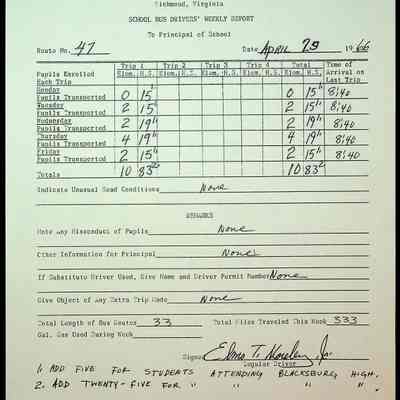 Richmond, Virginia
SCHOOL BUS DRIVERS' WEEKLY REPORT
To Principal of School
Route No. 47 Date APRIL 29 1966
Trip 1 Trip 2 Trip 3 Trip 4 Total Time of
Pupils Enrolled Elem. H.S. Elem. H.S. Elem. H.S. Elem. H.S. Elem. H.S. Arrival on
Each Trip Last Trip
Monday
Pupils Transported 0 15 0 15 8:40
Tuesday
Pupils Transported 2 15 2 15 8:40
Wednesday
Pupils Transported 2 19 2 19 8:40
Thursday
Pupils Transported 4 19 4 19 8:40
Friday
Pupils Transported 2 15 2 15 8:40
Totals 10 83 10 83
Indicate Unusual Road Conditions None
REMARKS
Note any Misconduct of Pupils None
Other Information for Principal None
If Substitute Driver Used, Give Name and Driver Permit Number None
Give Object of any Extra Trip Made None
Total Length of Bus Routes 33 Total Miles Traveled This Week 333
Gal. Gas Used During Week
Signed Elmo T. Jr.
Regular Driver
1. ADD FIVE FOR STUDENTS ATTENDING BLACKSBURG HIGH.
2. ADD TWENTY-FIVE FOR " " " "